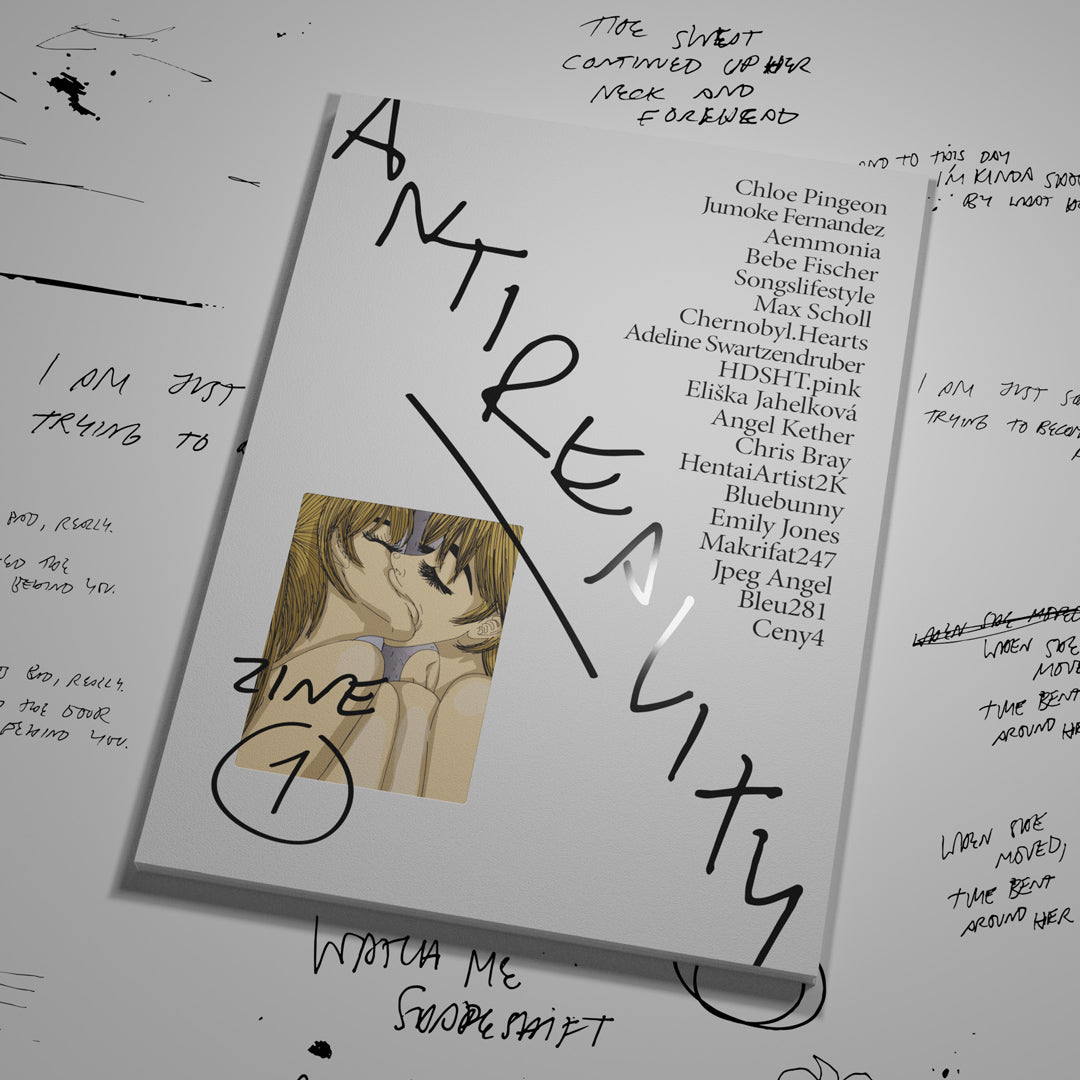 THE SWEAT
CONTINUED UP HER
NECK AND
FOREHEAD
AND TO THIS DAY
I'M KINDA
BY
ANTIREALITY
Chloe Pingeon
Jumoke Fernandez
Aemmonia
Bebe Fischer
Songslifestyle
Max Scholl
Chernobyl.Hearts
Adeline Swartzendruber
HDSHT.pink
Eliška Jahelková
Angel Kether
Chris Bray
HentaiArtist2K
Bluebunny
Emily Jones
Makrifat247
Jpeg Angel
Bleu281
Ceny4
ZINE
1
I AM JUST
TRYING TO
BAD, REALLY.
THE
BEHIND YOU.
BAD, REALLY.
THE DOOR
BEHIND YOU.
I AM JUST
TRYING TO
WHEN SHE MOVED
WHEN SHE
MOVED
TIME BENT
AROUND HER
WHEN SHE
MOVED,
TIME BENT
AROUND HER
WATCH ME
SHAPESHIFT